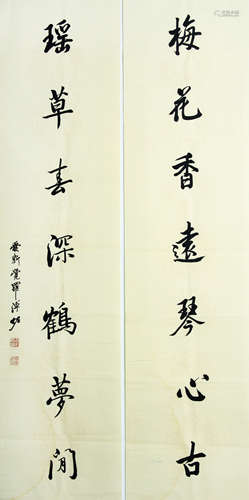 梅花香遠琴心古
瑶草春深鶴夢閒
愛新覺羅溥佐